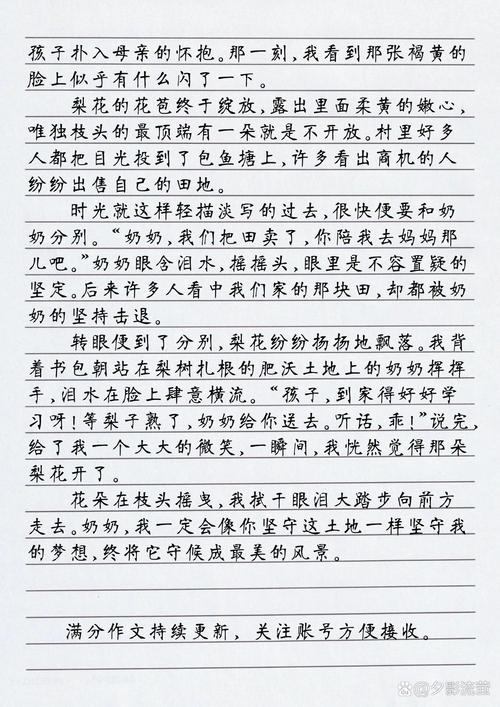 孩子扑入母亲的怀抱。那一刻,我看到那张褐黄的
脸上似乎有什么闪了一下。
梨花的花苞终于绽放,露出里面柔黄的嫩心,
唯独枝头的最顶端有一朵就是不开放。村里好多
人都把目光投到了包鱼塘上,许多看出商机的人
纷纷出售自己的田地。
时光就这样轻描淡写的过去,很快便要和奶
奶分别。“奶奶,我们把田卖了,你陪我去妈妈那
儿吧。”奶奶眼含泪水,摇摇头,眼里是不容置疑的
坚定。后来许多人看中我们家的那块田,却都被奶
奶的坚持击退。
转眼便到了分别,梨花纷纷扬扬地飘落。我背
着书包朝站在梨树扎根的肥沃土地上的奶奶挥挥
手,泪水在脸上肆意横流。“孩子,到家得好好学
习呀!等梨子熟了,奶奶给你送去。听话,乖!”说完,
给了我一个大大的微笑,一瞬间,我恍然觉得那朵
梨花开了。
花朵在枝头摇曳,我拭干眼泪大踏步向前方
走去。奶奶,我一定会像你坚守这土地一样坚守我
的梦想,终将它守候成最美的风景。
满分作文持续更新,关注账号方便接收。
@夕影流萤